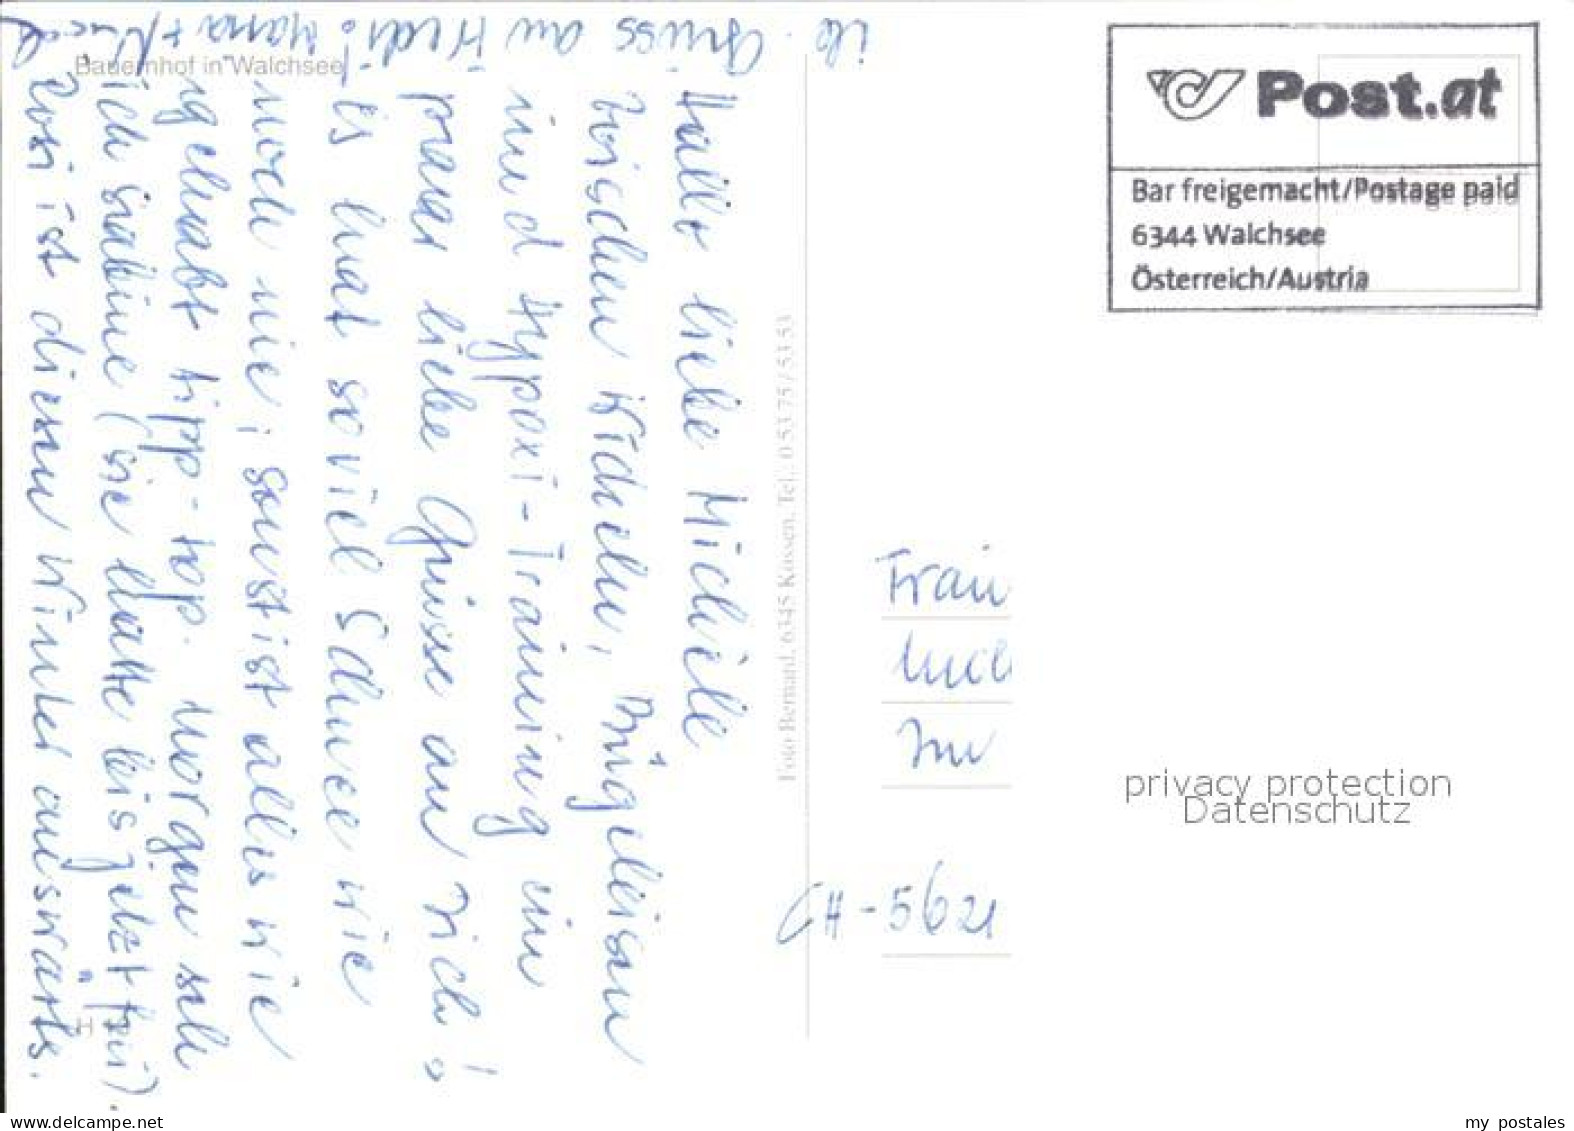 Hallo liebe Michèle
Zwischen Wickeln, Bügeleisen
und Hypoxi-Training ein
paar liebe Grüsse an Dich!
Es hat soviel Schnee wie
noch nie; sonst ist alles wie
gehabt tipp-topp. Morgen seh
ich Sabine (sie hatte bis jetzt frei).
Rosi ist diesen Winter auswärts.
lb. Gruss an Hedi. Mama +
Bauernhof in Walchsee
Foto Bernard, 6345 Kössen, Tel. 0 53 75 / 53 53
Post.at
Bar freigemacht/Postage paid
6344 Walchsee
Österreich/Austria
Frau
CH-5621
privacy protection
Datenschutz
delcampe.net
my postales